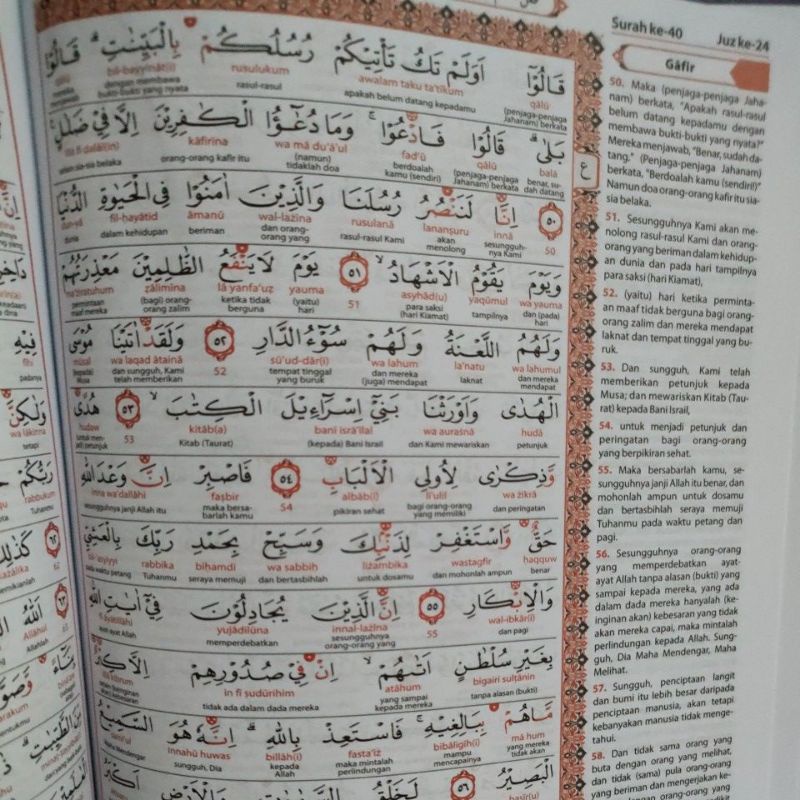 Surah ke-40 Juz ke-24
Gāfir
قَالُوْٓا اَوَلَمْ تَكُ تَأْتِيْكُمْ رُسُلُكُمْ بِالْبَيِّنٰتِ ۗ قَالُوْا
qālū awalam taku ta'tīkum rusulukum bil-bayyināt(i) qālū
(penjaga-penjaga Jahanam) berkata apakah belum datang kepadamu rasul-rasul dengan membawa bukti-bukti yang nyata mereka menjawab
بَلٰى ۗ قَالُوْا فَادْعُوْا ۚ وَمَا دُعٰۤؤُا الْكٰفِرِيْنَ اِلَّا فِيْ ضَلٰلٍ
balā qālū fad'ū wa mā du'ā'ul kāfirīna illā fī ḍalāl(in)
benar, sudah datang (penjaga-penjaga Jahanam) berkata berdoalah kamu (sendiri) (namun) tidaklah doa orang-orang kafir itu selain sia-sia belaka
٥٠ اِنَّا لَنَنْصُرُ رُسُلَنَا وَالَّذِيْنَ اٰمَنُوْا فِى الْحَيٰوةِ الدُّنْيَا
50 innā lananṣuru rusulanā wal-lażīna āmanū fil-ḥayātid dun-yā
sesungguhnya Kami akan menolong rasul-rasul Kami dan orang-orang yang beriman dalam kehidupan dunia
وَيَوْمَ يَقُوْمُ الْاَشْهَادُ ۙ ٥١ يَوْمَ لَا يَنْفَعُ الظّٰلِمِيْنَ مَعْذِرَتُهُمْ
wa yauma yaqūmul asyhād(u) 51 yauma lā yanfa'uẓ ẓālimīna ma'żiratuhum
dan (pada) hari tampilnya para saksi (hari Kiamat) (yaitu) hari ketika tidak berguna (bagi) orang-orang zalim permintaan maaf mereka
وَلَهُمُ اللَّعْنَةُ وَلَهُمْ سُوْۤءُ الدَّارِ ٥٢ وَلَقَدْ اٰتَيْنَا مُوْسَى
wa lahumul la'natu wa lahum sū'ud-dār(i) 52 wa laqad ātainā mūsal
dan mereka mendapat laknat dan mereka (juga) mendapat tempat tinggal yang buruk dan sungguh, Kami telah memberikan (kepada) Musa
الْهُدٰى وَاَوْرَثْنَا بَنِيْٓ اِسْرَاۤءِيْلَ الْكِتٰبَ ۙ ٥٣ هُدًى
hudā wa aurasnā banī isrā'īlal kitāb(a) 53 hudaw
petunjuk dan Kami mewariskan (kepada) Bani Israil Kitab (Taurat) untuk menjadi petunjuk
وَّذِكْرٰى لِاُولِى الْاَلْبَابِ ٥٤ فَاصْبِرْ اِنَّ وَعْدَ اللّٰهِ
wa żikrā li'ulil albāb(i) 54 faṣbir inna wa'dallāhi
dan peringatan bagi orang-orang yang memiliki pikiran sehat maka bersabarlah kamu sesungguhnya janji Allah itu
حَقٌّ وَّاسْتَغْفِرْ لِذَنْۢبِكَ وَسَبِّحْ بِحَمْدِ رَبِّكَ بِالْعَشِيِّ
haqquw wastagfir liżambika wa sabbiḥ biḥamdi rabbika bil-'asyiyyi
benar dan mohonlah ampun untuk dosamu dan bertasbihlah seraya memuji Tuhanmu pada waktu petang
وَالْاِبْكَارِ ٥٥ اِنَّ الَّذِيْنَ يُجَادِلُوْنَ فِيْٓ اٰيٰتِ اللّٰهِ
wal-ibkār(i) 55 innal-lażīna yujādilūna fī āyātillāhi
dan pagi sesungguhnya orang-orang yang memperdebatkan ayat-ayat Allah
بِغَيْرِ سُلْطٰنٍ اَتٰىهُمْ ۙ اِنْ فِيْ صُدُوْرِهِمْ اِلَّا كِبْرٌ
bigairi sulṭānin atāhum in fī ṣudūrihim illā kibrum
tanpa alasan (bukti) yang sampai kepada mereka tidak ada dalam dada mereka
مَّا هُمْ بِبَالِغِيْهِ ۚ فَاسْتَعِذْ بِاللّٰهِ ۗ اِنَّهٗ هُوَ السَّمِيْعُ
mā hum bibāligīh(i) fasta'iż billāh(i) innahū huwas samī'ul
yang mereka tidak akan mampu mencapainya maka mintalah perlindungan kepada Allah sungguh, Dia Maha Mendengar
الْبَصِيْرُ ٥٦ لَخَلْقُ السَّمٰوٰتِ وَالْاَرْضِ اَكْبَرُ
50. Maka (penjaga-penjaga Jaha-
nam) berkata, "Apakah rasul-rasul
belum datang kepadamu dengan
membawa bukti-bukti yang nyata?"
Mereka menjawab, "Benar, sudah da-
tang." (Penjaga-penjaga Jahanam)
berkata, "Berdoalah kamu (sendiri!)"
Namun doa orang-orang kafir itu sia-
sia belaka.
51. Sesungguhnya Kami akan me-
nolong rasul-rasul Kami dan orang-
orang yang beriman dalam kehidup-
an dunia dan pada hari tampilnya
para saksi (hari Kiamat),
52. (yaitu) hari ketika perminta-
an maaf tidak berguna bagi orang-
orang zalim dan mereka mendapat
laknat dan tempat tinggal yang bu-
ruk.
53. Dan sungguh, Kami telah
memberikan petunjuk kepada
Musa; dan mewariskan Kitab (Tau-
rat) kepada Bani Israil,
54. untuk menjadi petunjuk dan
peringatan bagi orang-orang
yang berpikiran sehat.
55. Maka bersabarlah kamu, se-
sungguhnya janji Allah itu benar, dan
mohonlah ampun untuk dosamu
dan bertasbihlah seraya memuji
Tuhanmu pada waktu petang dan
pagi.
56. Sesungguhnya orang-orang
yang memperdebatkan ayat-
ayat Allah tanpa alasan (bukti) yang
sampai kepada mereka, yang ada
dalam dada mereka hanyalah (ke-
inginan akan) kebesaran yang tidak
akan mereka capai, maka mintalah
perlindungan kepada Allah. Sung-
guh, Dia Maha Mendengar, Maha
Melihat.
57. Sungguh, penciptaan langit
dan bumi itu lebih besar daripada
penciptaan manusia, akan tetapi
kebanyakan manusia tidak menge-
tahui.
58. Dan tidak sama orang yang
buta dengan orang yang melihat,
dan tidak (sama) pula orang-orang
yang beriman dan mengerjakan ke-